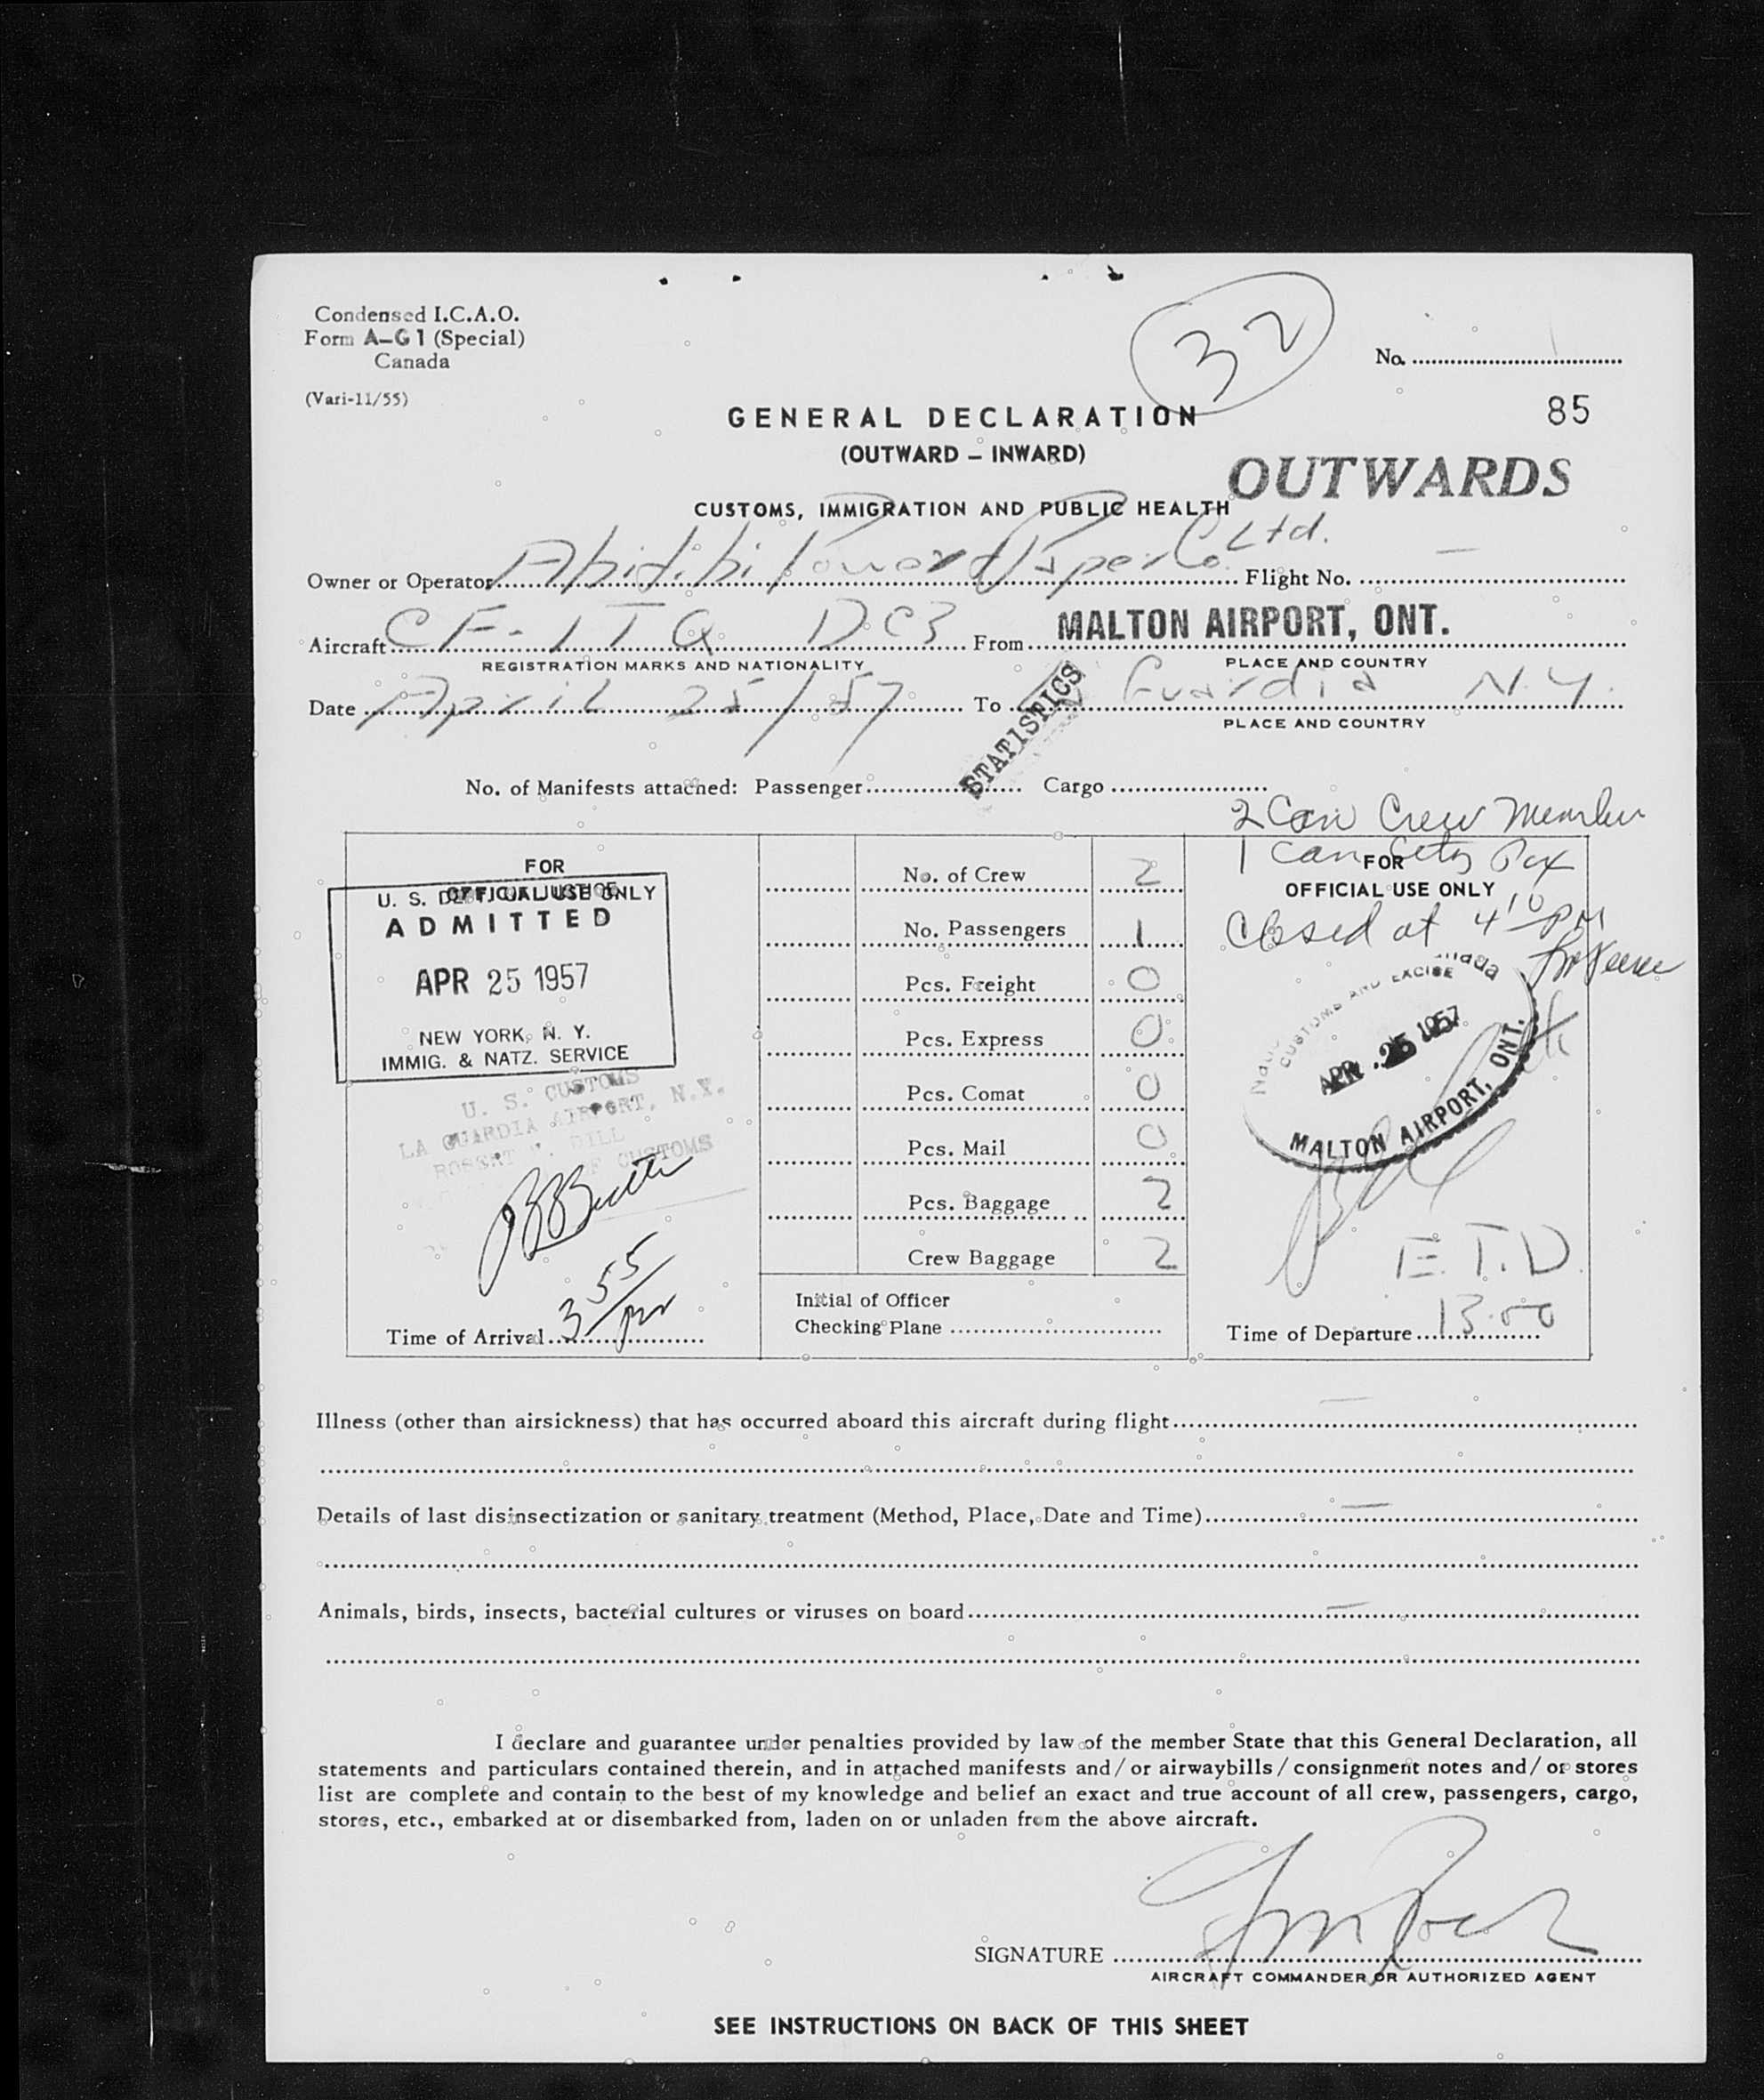 Condensed I.C.A.O.
Form A-G1 (Special)
Canada
(Vari-11/55)
32
No.
85
GENERAL DECLARATION
(OUTWARD – INWARD)
OUTWARDS
CUSTOMS, IMMIGRATION AND PUBLIC HEALTH
Owner or Operator Abitibi Power & Paper Co. Ltd. Flight No. —
Aircraft CF-ITQ DC3 From MALTON AIRPORT, ONT.
REGISTRATION MARKS AND NATIONALITY PLACE AND COUNTRY
Date April 25/57 To Guardia N.Y.
PLACE AND COUNTRY
STATISTICS
No. of Manifests attached: Passenger Cargo
2 Can Crew Member
1 Can Pax
FOR
OFFICIAL USE ONLY
U. S. DEPT. OF JUSTICE
ADMITTED
APR 25 1957
NEW YORK, N. Y.
IMMIG. & NATZ. SERVICE
U. S. CUSTOMS
LA GUARDIA AIRPORT, N.Y.
ROBERT W. DILL
OF CUSTOMS
Time of Arrival 3 55 pm
No. of Crew 2
No. Passengers 1
Pcs. Freight 0
Pcs. Express 0
Pcs. Comat 0
Pcs. Mail 0
Pcs. Baggage 2
Crew Baggage 2
Initial of Officer
Checking Plane
FOR
OFFICIAL USE ONLY
Closed at 4 10 PM
CUSTOMS AND EXCISE
APR 25 1957
MALTON AIRPORT, ONT.
E.T.D.
Time of Departure 13.00
Illness (other than airsickness) that has occurred aboard this aircraft during flight —
Details of last disinsectization or sanitary treatment (Method, Place, Date and Time) —
Animals, birds, insects, bacterial cultures or viruses on board —
I declare and guarantee under penalties provided by law of the member State that this General Declaration, all
statements and particulars contained therein, and in attached manifests and/or airwaybills/consignment notes and/or stores
list are complete and contain to the best of my knowledge and belief an exact and true account of all crew, passengers, cargo,
stores, etc., embarked at or disembarked from, laden on or unladen from the above aircraft.
SIGNATURE
AIRCRAFT COMMANDER OR AUTHORIZED AGENT
SEE INSTRUCTIONS ON BACK OF THIS SHEET